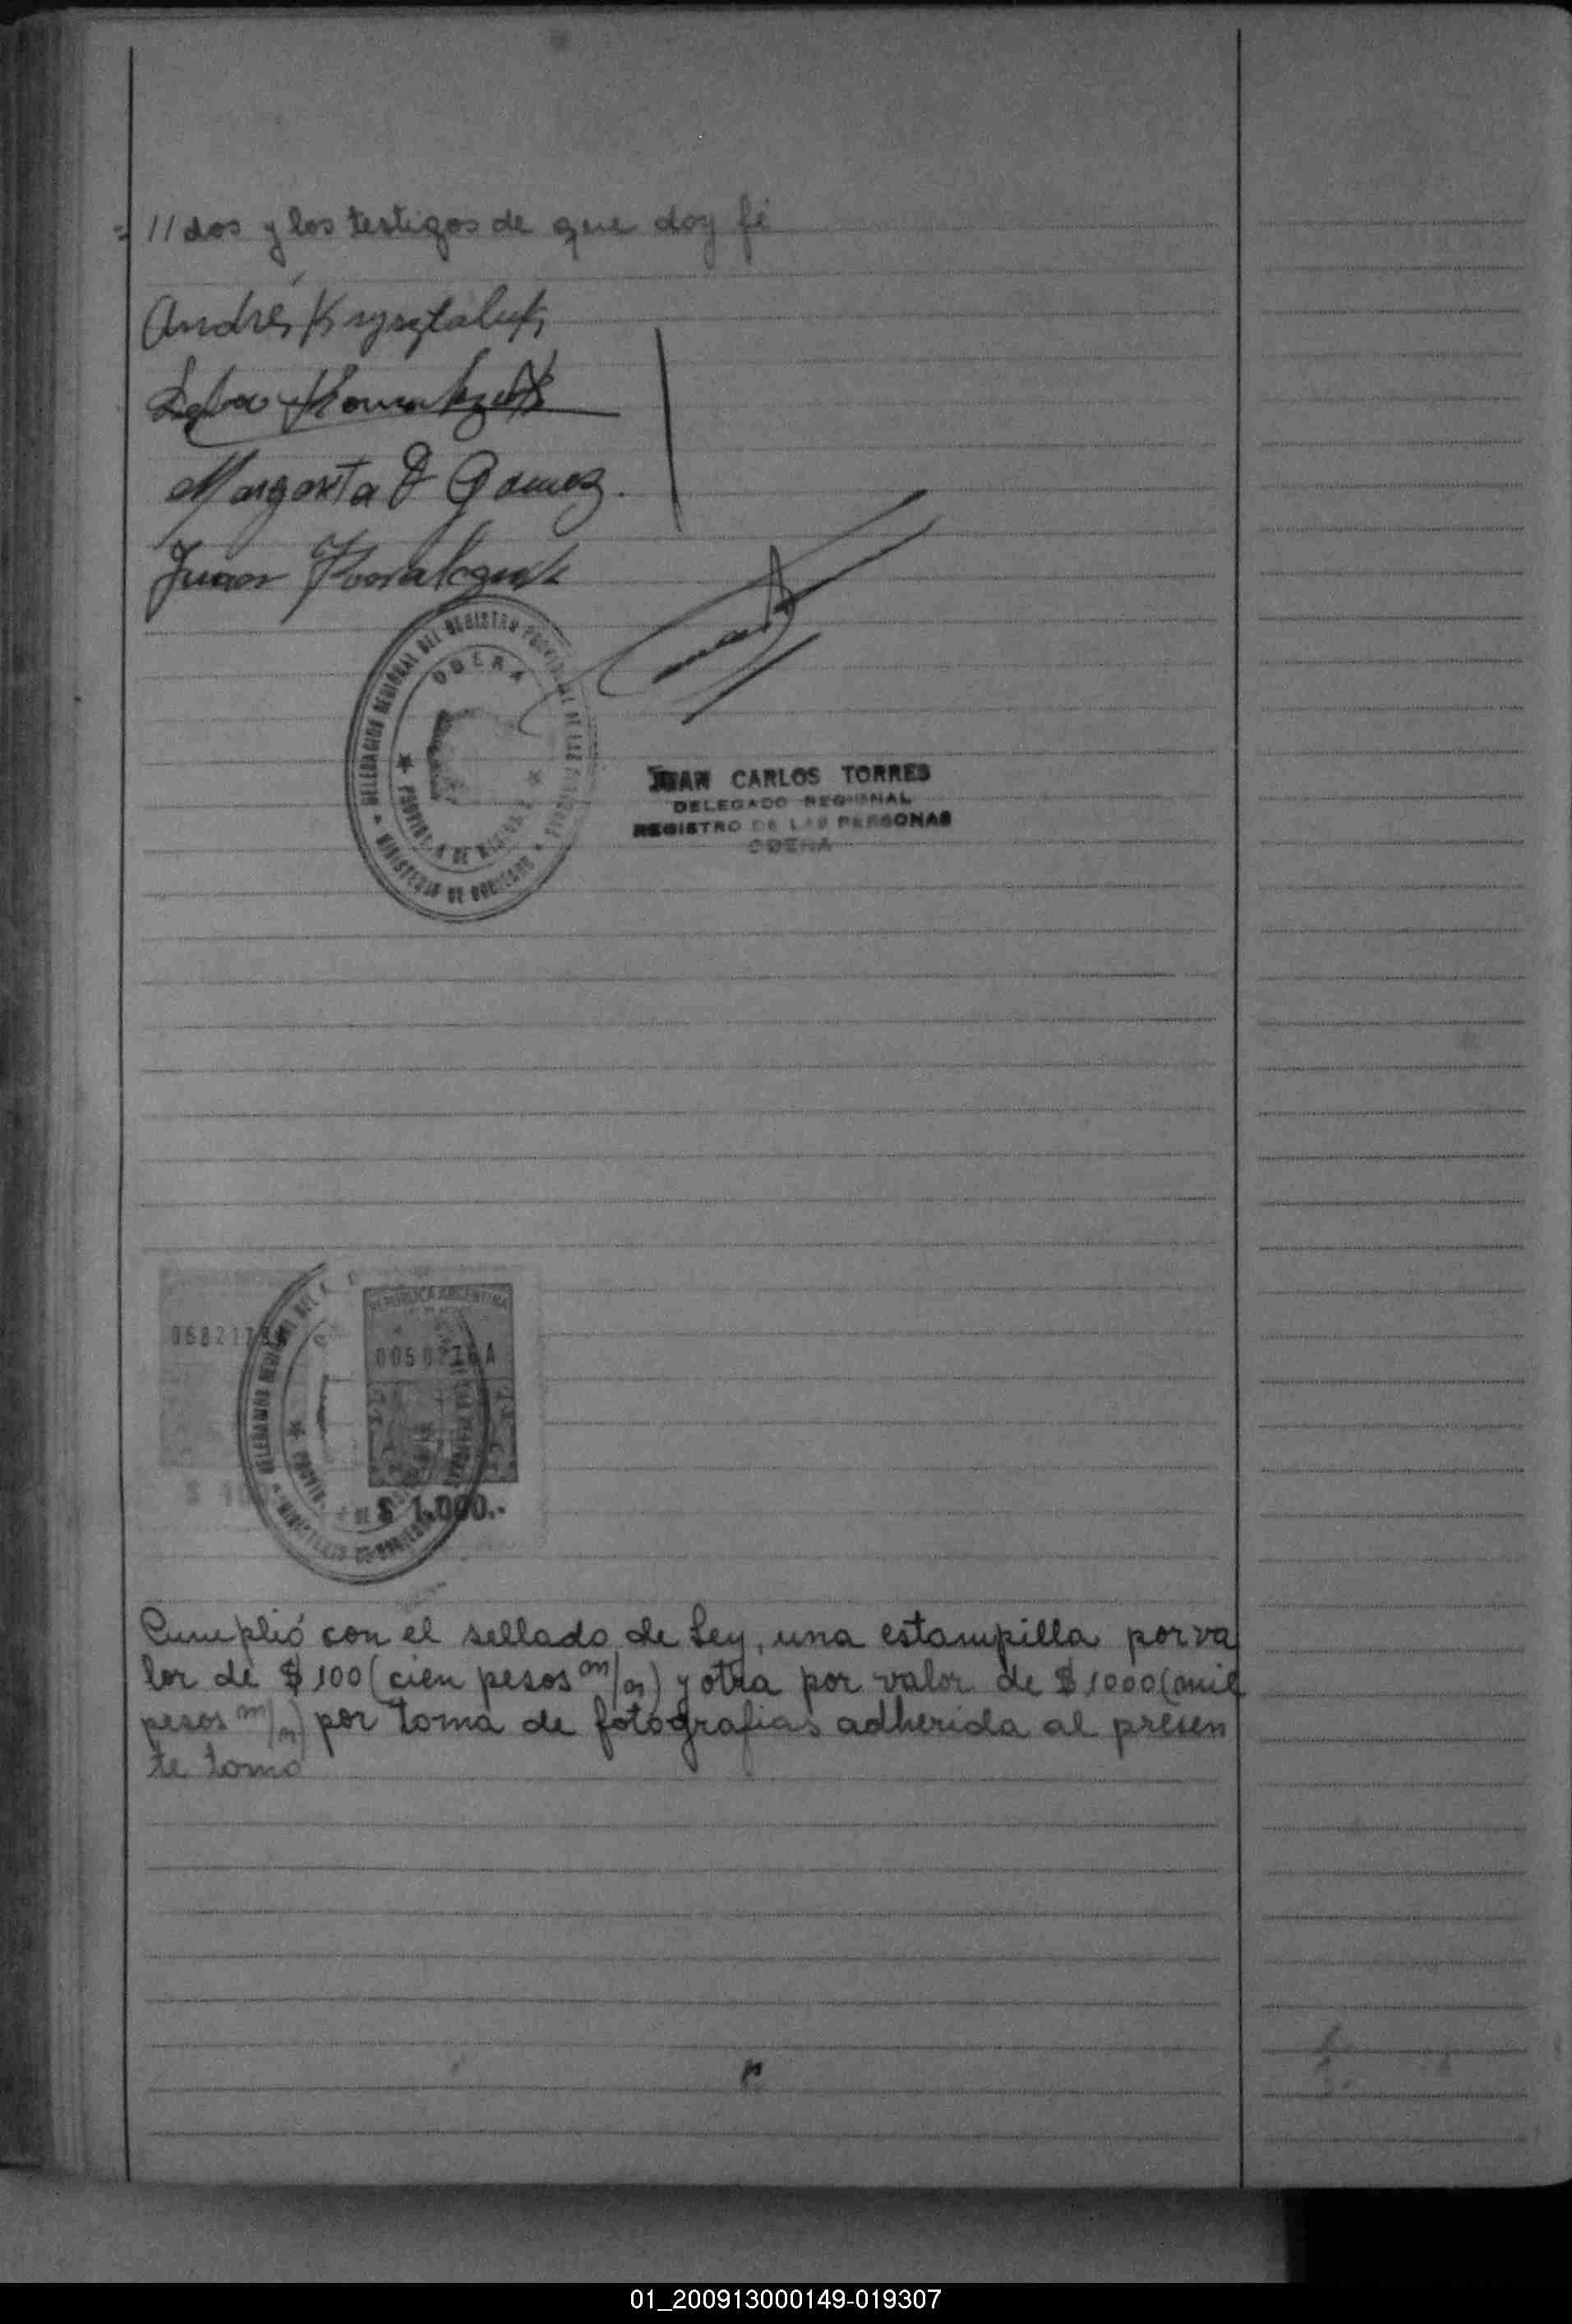 //dos y los testigos de que doy fé
Andrés Krysztaluk
Margarita D Gomez.
Juan Kowalczuk
DELEGACION REGIONAL DEL REGISTRO PROVINCIAL DE LAS PERSONAS
OBERA
PROVINCIA DE MISIONES
MINISTERIO DE GOBIERNO
JUAN CARLOS TORRES
DELEGADO REGIONAL
REGISTRO DE LAS PERSONAS
OBERA
REPUBLICA ARGENTINA
$ 1.000.-
Cumplió con el sellado de Ley, una estampilla por va
lor de $ 100 (cien pesos m/n) y otra por valor de $ 1000 (mil
pesos m/n) por toma de fotografias adherida al presen
te tomo
01_200913000149-019307